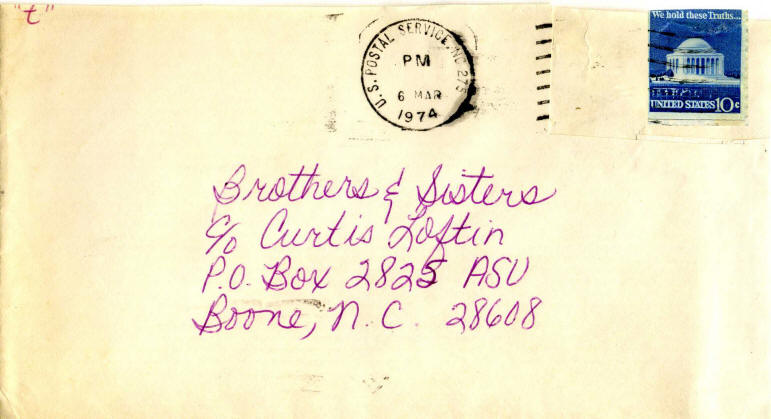 "t"
U.S. POSTAL SERVICE, NC 275
PM
6 MAR
1974
We hold these Truths...
UNITED STATES 10c
Brothers & Sisters
c/o Curtis Loftin
P.O. Box 2825 ASU
Boone, N.C. 28608